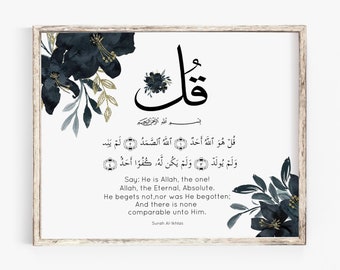 قُل
بسم الله الرحمن الرحيم
قُلْ هُوَ ٱللَّهُ أَحَدٌ ٱللَّهُ ٱلصَّمَدُ لَمْ يَلِدْ
وَلَمْ يُولَدْ وَلَمْ يَكُن لَّهُۥ كُفُوًا أَحَدٌۢ
Say: He is Allah, the one!
Allah, the Eternal, Absolute.
He begets not,nor was He begotten;
And there is none
comparable unto Him.
Surah Al Ikhlas